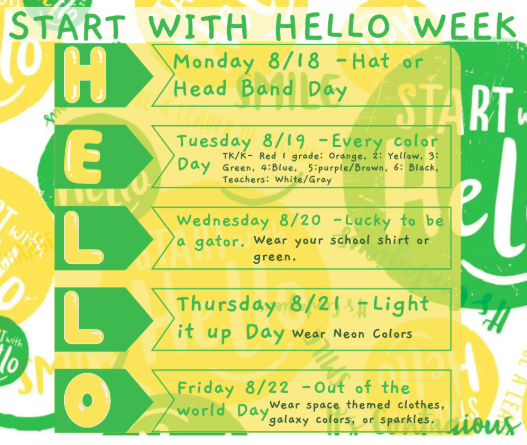 START WITH HELLO WEEK
H
Monday 8/18 -Hat or
Head Band Day
E
Tuesday 8/19 -Every color
Day TK/K- Red 1 grade: Orange, 2: Yellow, 3:
Green, 4:Blue, 5:purple/Brown, 6: Black,
Teachers: White/Gray
L
Wednesday 8/20 -Lucky to be
a gator. Wear your school shirt or
green.
L
Thursday 8/21 -Light
it up Day Wear Neon Colors
O
Friday 8/22 -Out of the
world Day Wear space themed clothes,
galaxy colors, or sparkles.